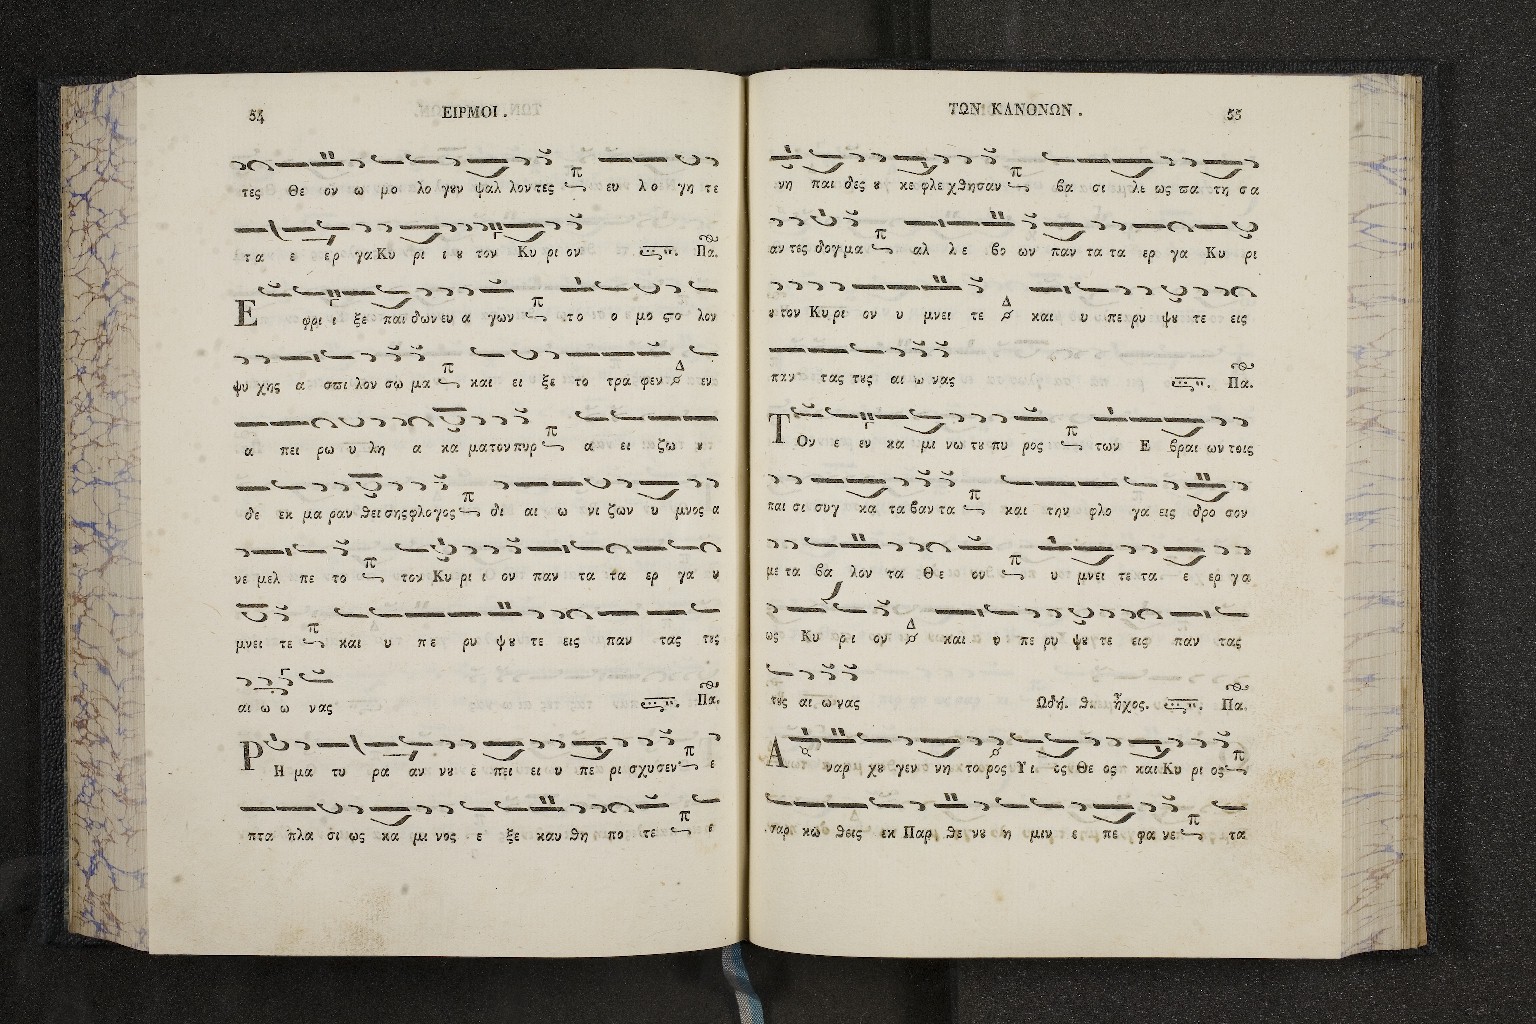 54 ΕΙΡΜΟΙ .
τες Θε ον ω μο λο γȣν ψαλ λον τες π ευ λο γη τε
τα ε ερ γα Κυ ρι ι ȣ τον Κυ ρι ον Πα.
Ε φρι ι ξε παι δων ευ α γων π το ο μο ςο λον
ψυ χης α σπι λον σω μα π και ει ξε το τρα φεν Δ εν
α πει ρω υ λη α κα μα τον πυρ π α ει ζω ȣ
δε εκ μα ραν θει σης φλογος π δι αι ω νι ζων υ μνος α
νε μελ πε το π τον Κυ ρι ι ον παν τα τα ερ γα υ
μνει τε π και υ πε ρυ ψȣ τε εις παν τας τȣς
αι ω ω νας Πα.
Ρ Η μα τυ ρα αν νȣ ε πει ει υ πε ρι σχυσεν π ε
πτα πλα σι ως κα μι νος ε ξε καυ θη πο τε π ε
ΤΩΝ ΚΑΝΟΝΩΝ . 55
νη παι δες ȣ κε φλε χθησαν π βα σι λε ως πα τη σα
αν τες δογ μα π αλ λε βο ων παν τα τα ερ γα Κυ ρι
ȣ τον Κυ ρι ον υ μνει τε Δ και υ πε ρυ ψȣ τε εις
παν τας τȣς αι ω νας Πα.
Τ Ον ε εν κα μι νω τȣ πυ ρος π των Ε βραι ων τοις
παι σι συγ κα τα βαν τα π και την φλο γα εις δρο σον
με τα βα λον τα Θε ον π υ μνει τε τα ε ερ γα
ως Κυ ρι ον Δ και υ πε ρυ ψȣ τε εις παν τας
τȣς αι ω νας Ωδή. θ. ἦχος. Πα.
Α ναρ χȣ γεν νη το ρος Υι ος Θε ος και Κυ ρι ος π
σαρ κω θεις εκ Παρ θε νȣ η μιν ε πε φα νε π τα